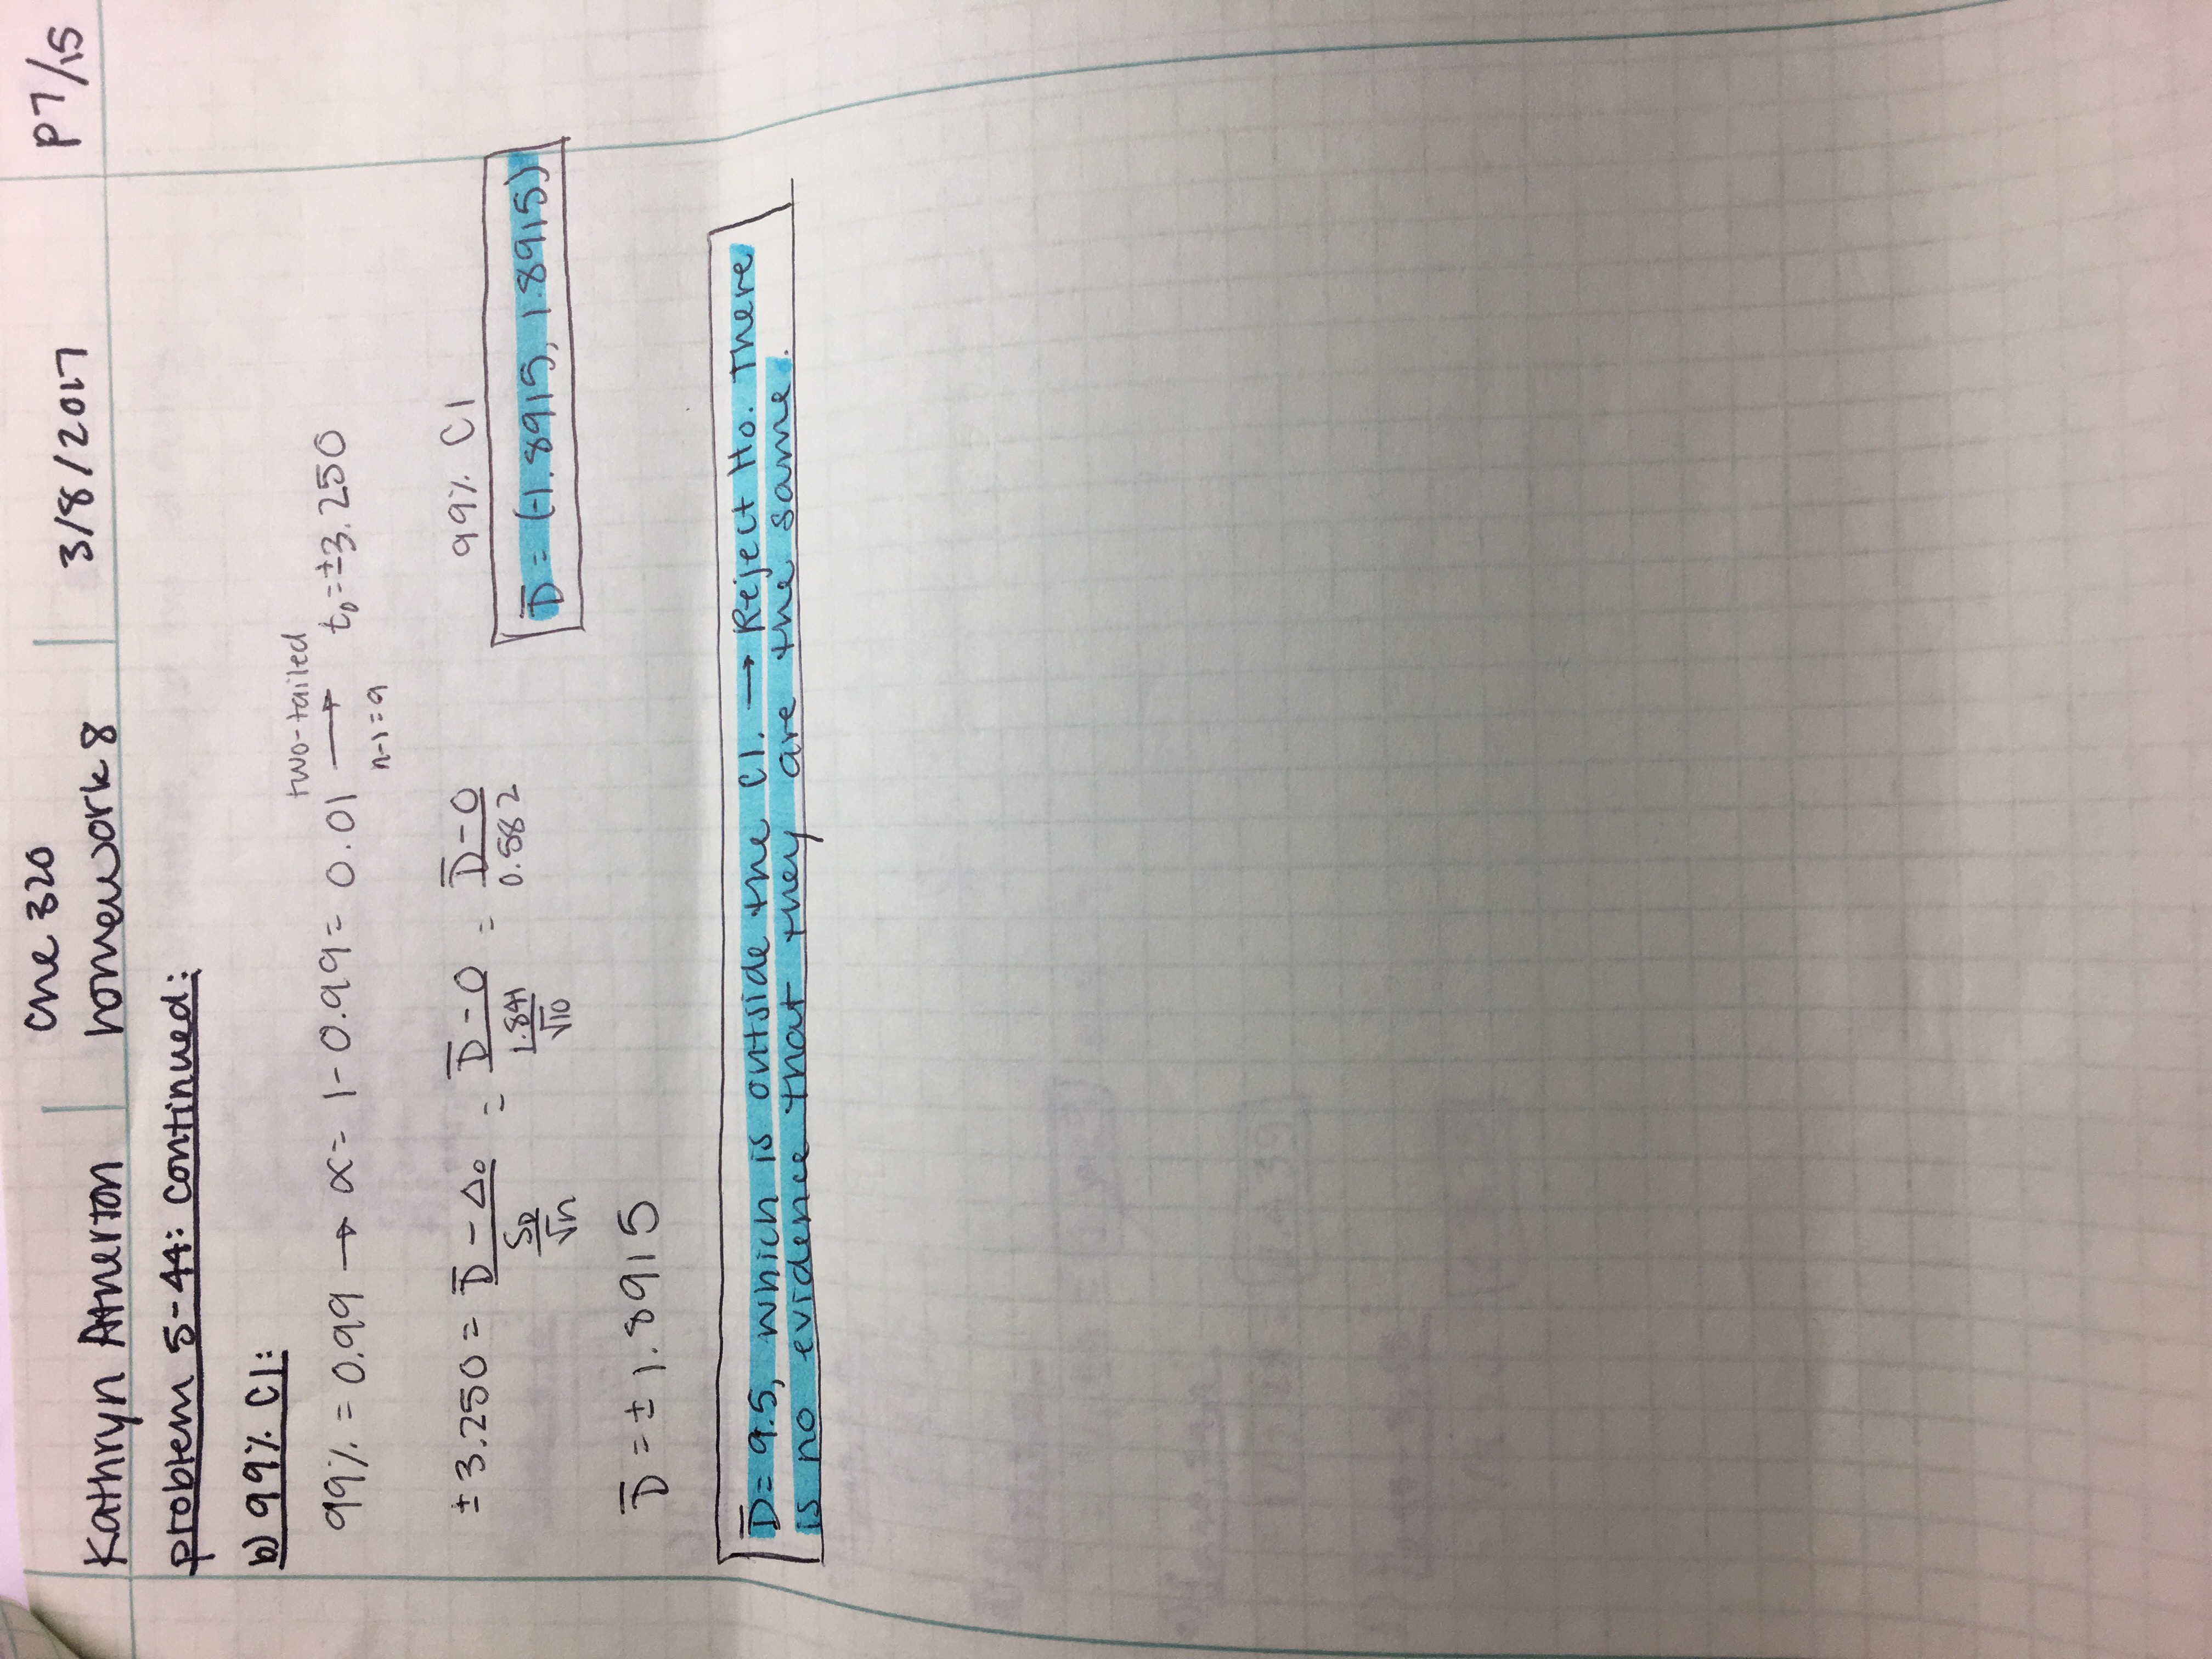 Kathryn Atherton
che 320
homework 8
3/8/2017
P7/15
problem 5-44: continued:
b) 99% CI:
99% = 0.99 → α = 1 - 0.99 = 0.01 two-tailed → n-1=9 t₀ = ±3.250
±3.250 = D̄ - Δ₀ / (S_D / √n) = D̄ - 0 / (1.841 / √10) = D̄ - 0 / 0.582
99% CI
D̄ = (-1.8915, 1.8915)
D̄ = ± 1.8915
D̄ = 9.5, which is outside the CI. → Reject H₀. There
is no evidence that they are the same.